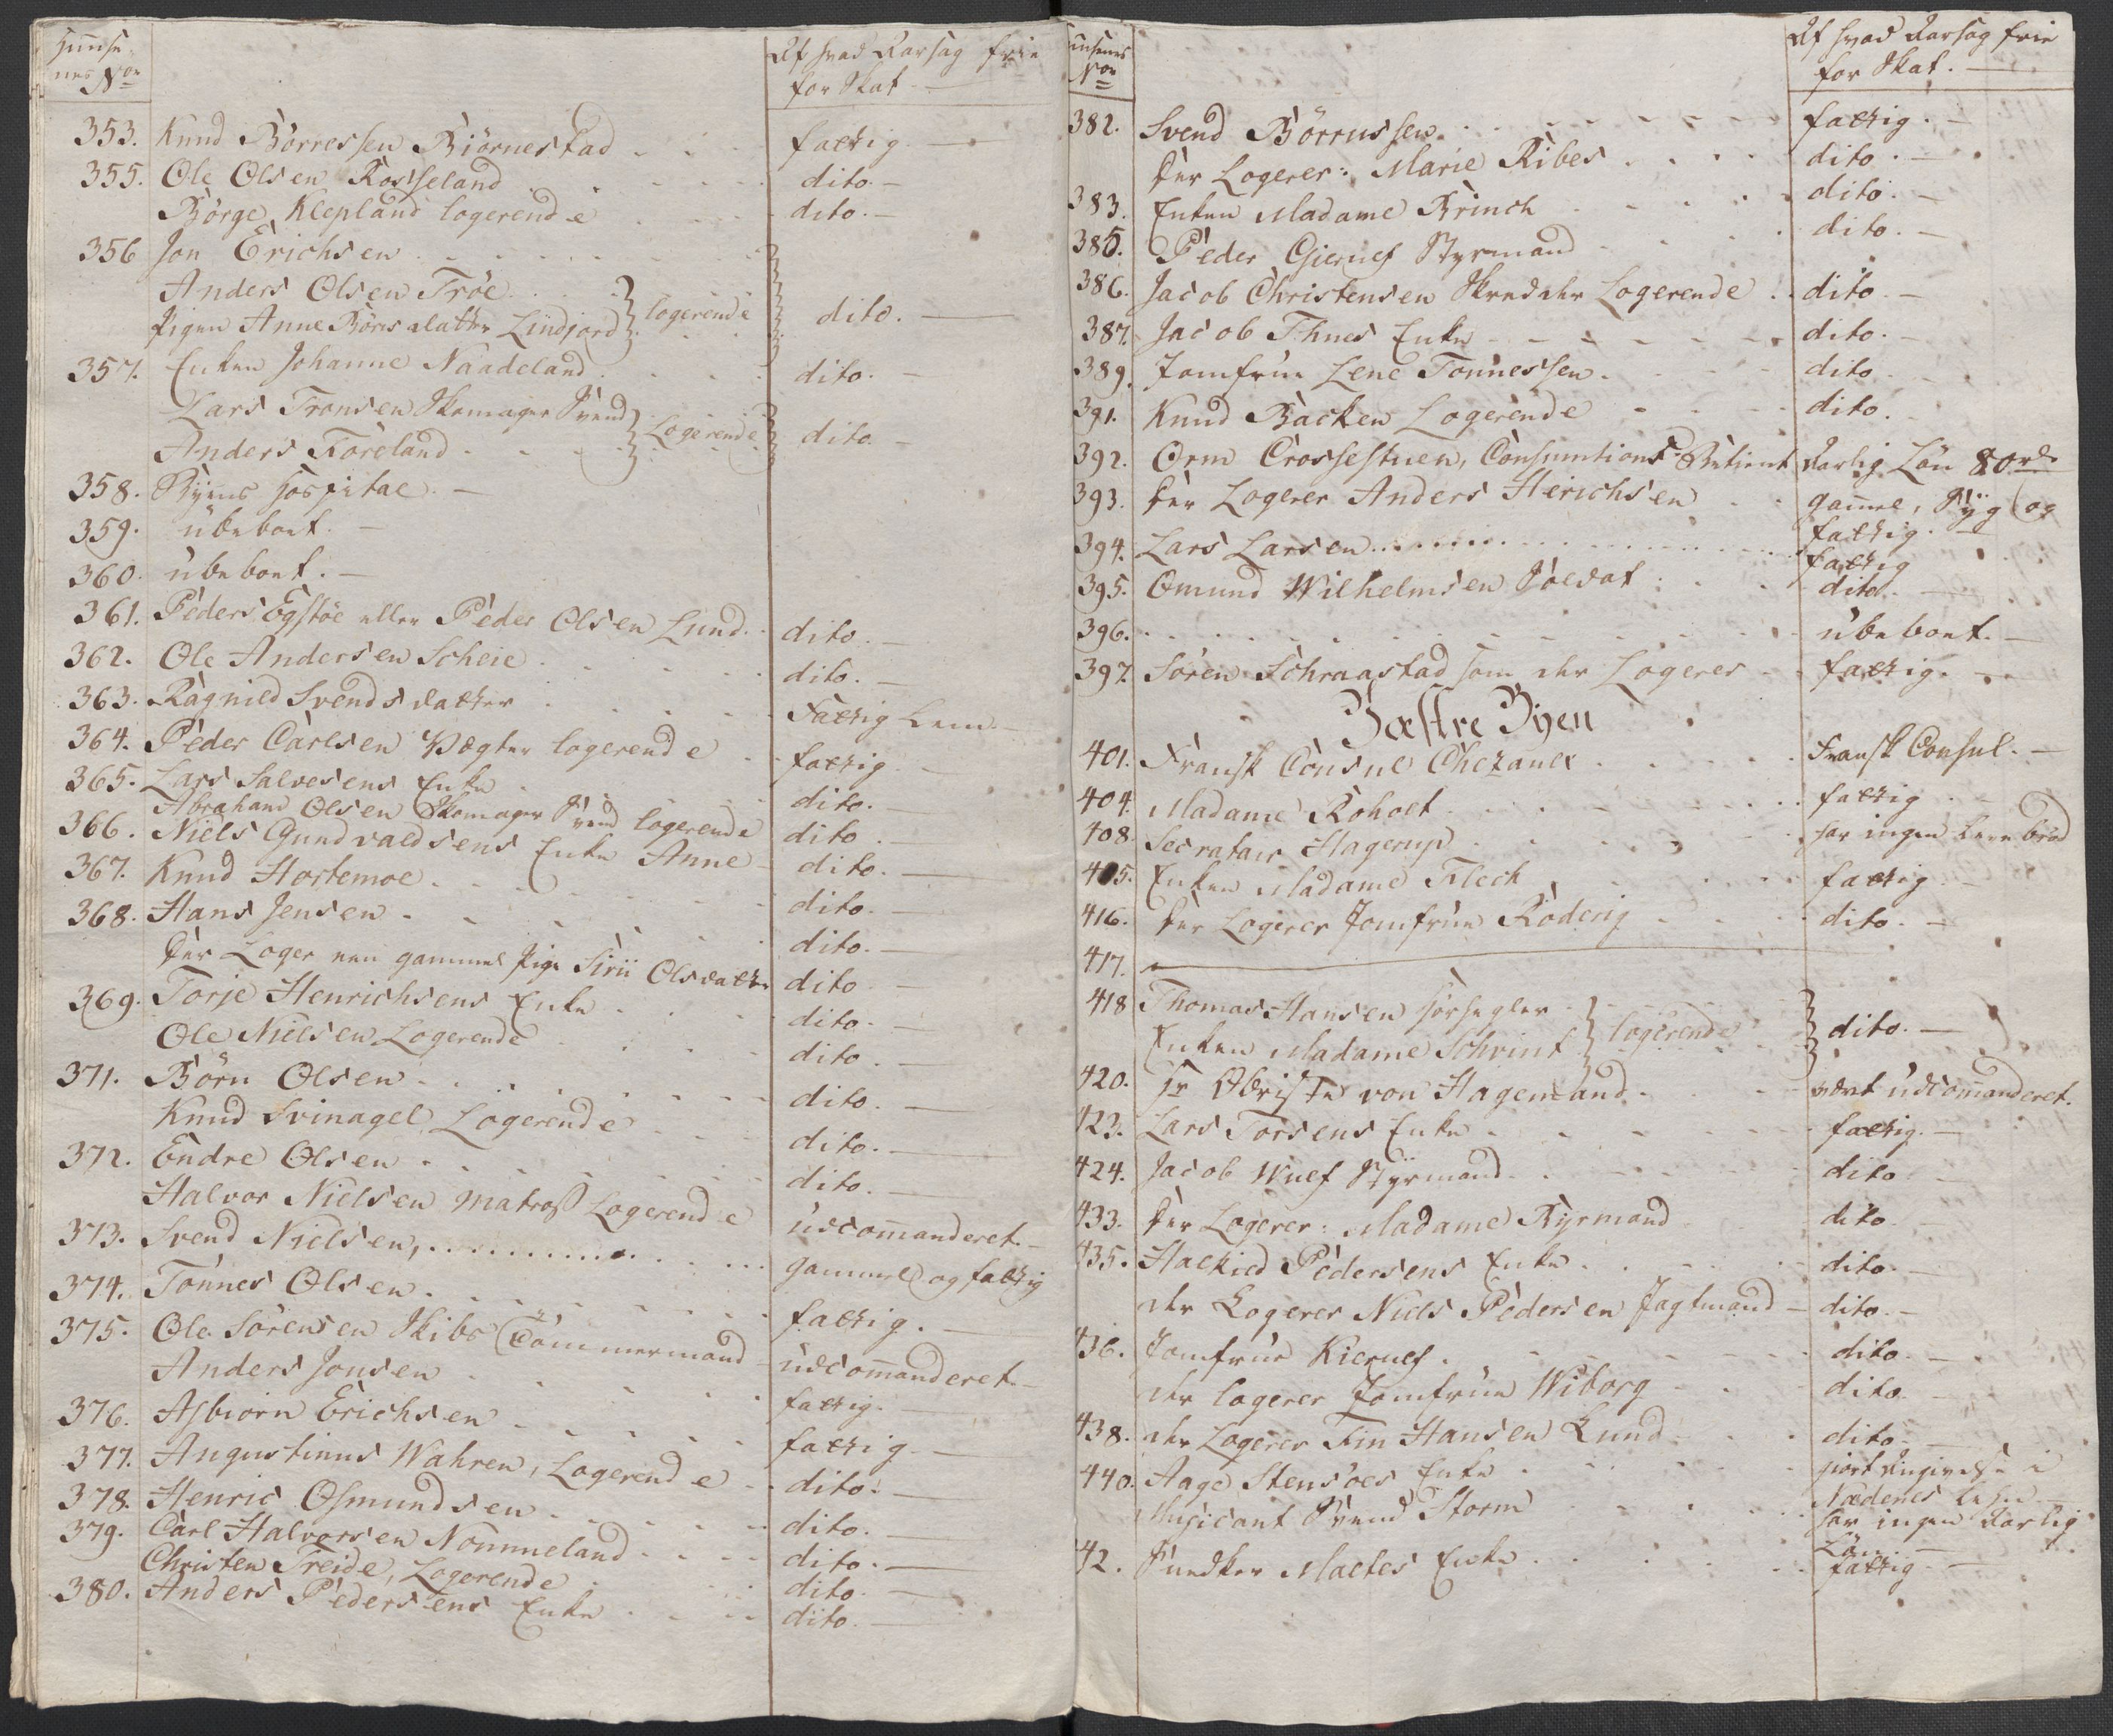 Huuse-
nes No
Af hvad Aarsag frie
for Skat.
353. Knud Börressen Biörnestad fattig.
355. Ole Olsen Rosseland dito.
Börge Klepland logerende dito.
356 Jon Erichsen
Anders Olsen Tröe
Pigen Anne Börs datter Lindjord logerende dito.
357. Enken Johanne Naadeland dito.
Lars Tronsen Skomager Svend
Anders Föreland Logerende dito.
358. Byens Hospital.
359. ubeboet.
360. ubeboet.
361. Peders Egstöe eller Peder Olsen Lund dito.
362. Ole Andersen Scheie dito.
363. Ragnild Svends datter Fattig Lem.
364. Peder Carlsen Vægter logerende fattig
365. Lars Salvesens Enke dito.
Abraham Olsen Skomager Svend logerende dito.
366. Niels Gundvaldsens Enke Anne dito.
367. Knud Hortemoe dito.
368. Hans Jensen dito.
der Loger een gammel Pige Sirii Olsdatter dito
369. Torje Henrichsens Enke dito.
Ole Nielsen Logerende dito.
371. Börn Olsen dito.
Knud Svinagel Logerende dito.
372. Endre Olsen dito.
Halvor Nielsen Matros Logerende udcommanderet.
373. Svend Nielsen, gammel og fattig
374. Tönnes Olsen fattig.
375. Ole Sörensen Skibs Tömmermand udcommanderet.
Anders Jonsen fattig.
376. Asbiorn Erichsen fattig.
377. Augustinus Wahren, Logerende dito.
378. Henric Osmundsen dito.
379. Carl Halvorsen Nommeland dito.
Christen Treide, Logerende dito.
380. Anders Pedersens Enke dito.
Huusenes
No
Af hvad Aarsag frie
for Skat.
382. Svend Börrussen fattig.
der Logerer: Marie Ribes dito.
383. Enken Madame Brinch dito.
385. Peder Gierulf Styrmand dito.
386. Jacob Christensen Skredder Logerende dito.
387. Jacob Thues Enke dito.
389. Jomfrue Lene Tonnessen dito
391. Knud Backen Logerende dito.
392. Orm Crossestuen, Consumtions Betient Aarlig Lön 80 rd
393. der Logerer Anders Herichsen gammel, Syg og
fattig.
394. Lars Larsen fattig
395. Omund Wilhelmsen Soldat dito.
396. ubeboet.
397. Sören Schraastad som der Logerer fattig.
Væstre Byen
401. Fransk Consul Chezaulx Fransk Consul.
404. Madame Roholt fattig
408. Secretair Hagerup har ingen Levebröd
405. Enken Madame Flech fattig
416. der Logerer Jomfrue Röderig dito.
417.
418 Thomas Hansen Forsegler
Enken Madame Schvint logerende dito.
420. Hr Obriste von Hagemand vært udcommanderet.
423. Lars Torsens Enke fattig.
424. Jacob Wulf Styrmand dito
433. der Logerer: Madame Byrmand dito
435. Halkied Pedersens Enke dito.
der Logerer Niels Pedersen Jagtmand dito.
436. Jomfrue Kierulf dito.
der logerer Jomfrue Wiborg dito.
438. der Logerer Fin Hansen Lund dito.
440. Aage Stensöes Enke
Nædenes Lehn
Musicant Svend Storm har ingen Aarlig
Lön.
442. Snedker Maltes Enke fattig